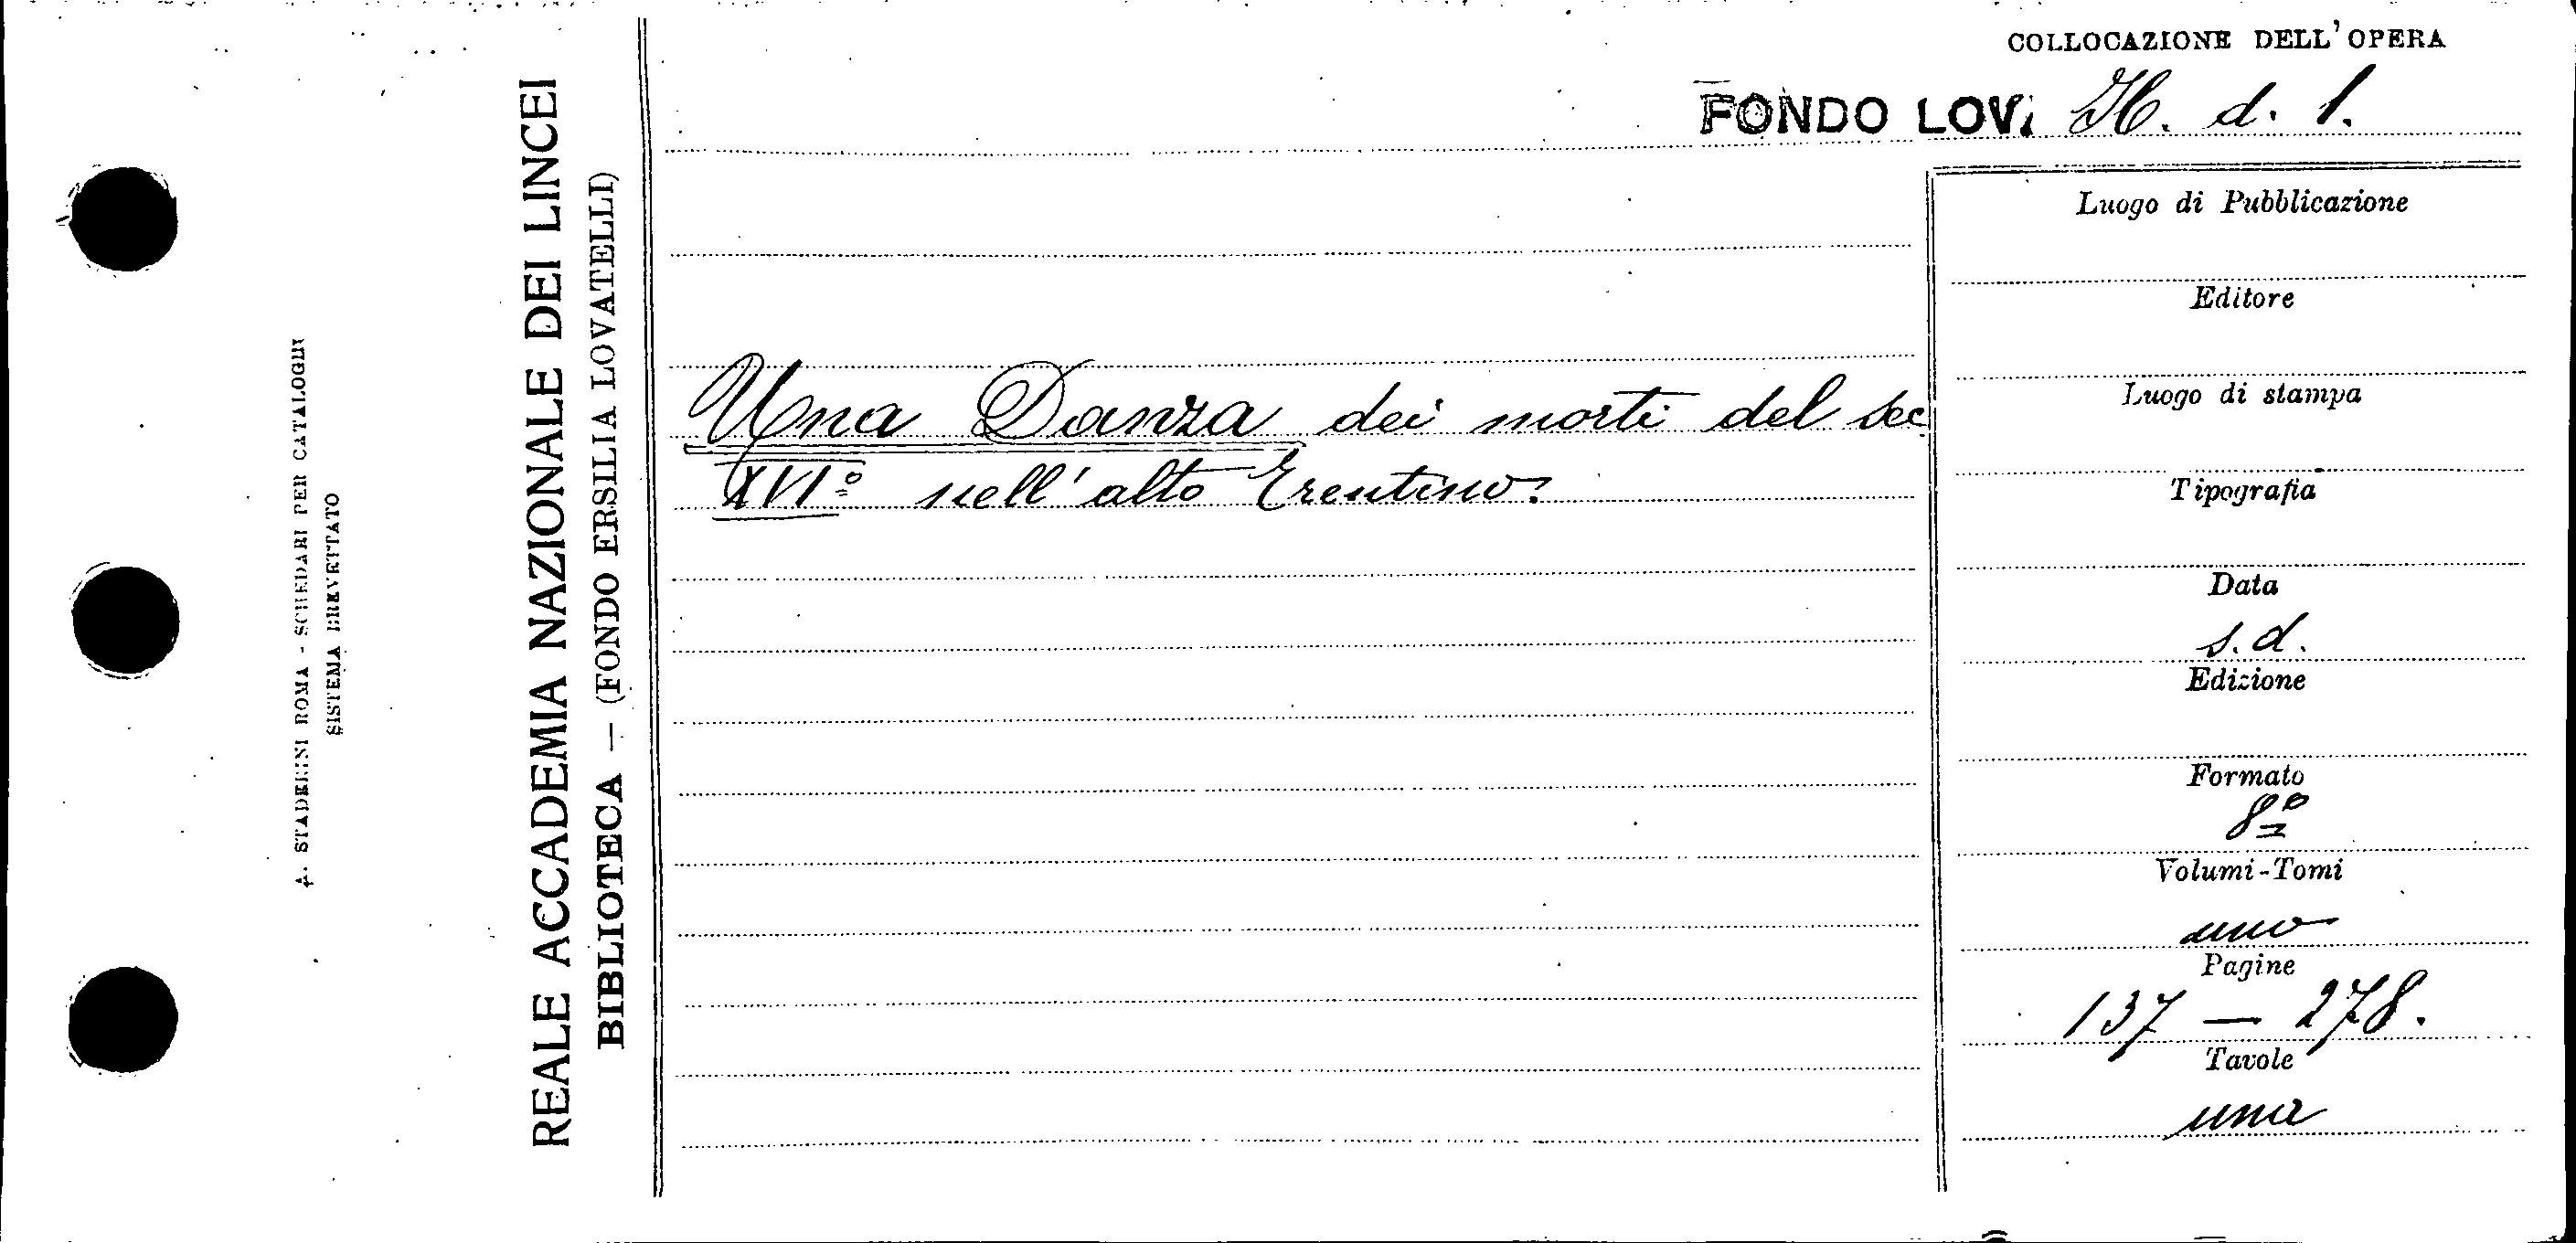 COLLOCAZIONE DELL'OPERA
FONDO LOV. H. d. 1.
A. STADERINI ROMA - SCHEDARI PER CATALOGHI
SISTEMA BREVETTATO
REALE ACCADEMIA NAZIONALE DEI LINCEI
BIBLIOTECA — (FONDO ERSILIA LOVATELLI)
Una Danza dei morti del sec.
XVIº nell'alto Trentino.
Luogo di Pubblicazione
Editore
Luogo di stampa
Tipografia
Data
s.d.
Edizione
Formato
8º
Volumi-Tomi
uno
Pagine
137 — 278.
Tavole
una